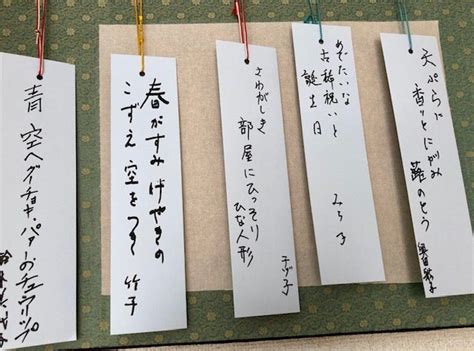 天ぷらに
香りとにがみ
蕗のとう
めでたいな
古稀祝いと
誕生日
みち子
さわがしき
部屋にひっそり
ひな人形
千づ子
春がすみけやきの
こずえ空をつき
竹子
青空へグーチョキ・パァーのチューリップ